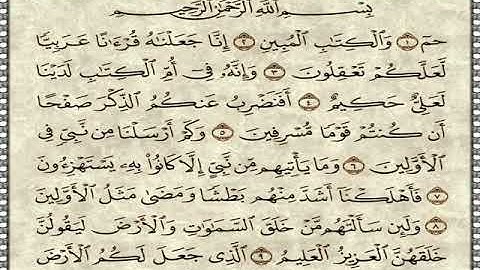 بِسْمِ اللَّهِ الرَّحْمَٰنِ الرَّحِيمِ
حمٓ ١ وَالْكِتَابِ الْمُبِينِ ٢ إِنَّا جَعَلْنَاهُ قُرْءَانًا عَرَبِيًّا
لَّعَلَّكُمْ تَعْقِلُونَ ٣ وَإِنَّهُ فِي أُمِّ الْكِتَابِ لَدَيْنَا
لَعَلِيٌّ حَكِيمٌ ٤ أَفَنَضْرِبُ عَنكُمُ الذِّكْرَ صَفْحًا
أَن كُنتُمْ قَوْمًا مُّسْرِفِينَ ٥ وَكَمْ أَرْسَلْنَا مِن نَّبِيٍّ فِي
الْأَوَّلِينَ ٦ وَمَا يَأْتِيهِم مِّن نَّبِيٍّ إِلَّا كَانُوا بِهِ يَسْتَهْزِءُونَ
٧ فَأَهْلَكْنَا أَشَدَّ مِنْهُم بَطْشًا وَمَضَىٰ مَثَلُ الْأَوَّلِينَ
٨ وَلَئِن سَأَلْتَهُم مَّنْ خَلَقَ السَّمَاوَاتِ وَالْأَرْضَ لَيَقُولُنَّ
خَلَقَهُنَّ الْعَزِيزُ الْعَلِيمُ ٩ الَّذِي جَعَلَ لَكُمُ الْأَرْضَ